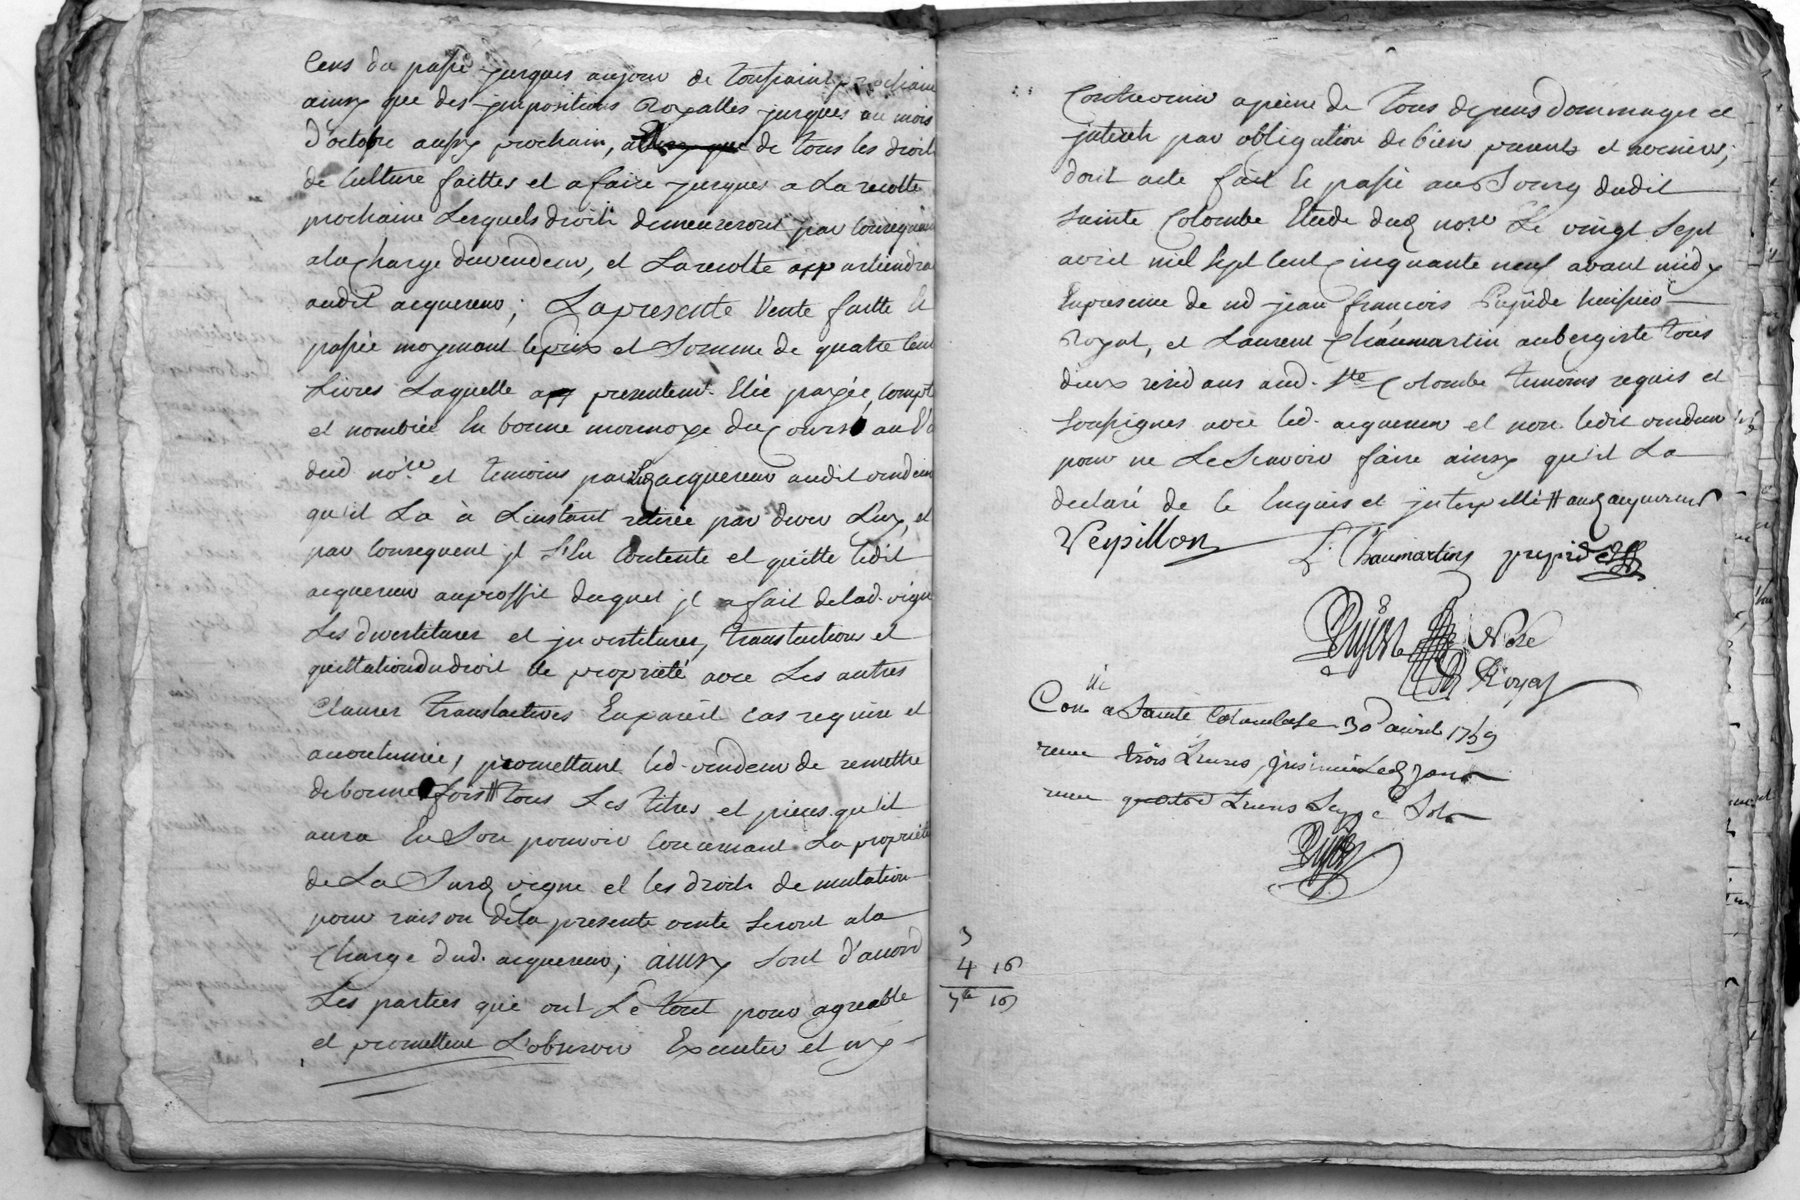 Cens du passé jusques aujour de toussaint prochain
ainsy que des jmpositions Royalles jusques au mois
d'octobre aussy prochain, de tous les droits
de Culture faittes et a faire jusques a La recolte
prochaine Lesquels droits demeureront par Consequent
ala Charge duvendeur, et La recolte appartiendra
audit acquereur; La presente Vente faitte et
passée moyenant le prix et Somme de quatre Cent
Livres Laquelle a presentemt. Eté payée, Compté
et nombrée En bonne monnoye du Cours au Vû
dud no.re et temoins par acquereur audit vendeur
qu'il La à Linstant retirée par devers Luy, et
par Consequent jl S'En Contente et quitte ledit
acquereur auproffit duquel jl a fait delad. vigne
Les devestitures et jnvestitures, translactions et
quittationdudroit de proprieté avec Les autres
Clauses translatives En pareil cas requise et
accoutumée, promettant led. vendeur de remettre
de bonne fois # tous Les titres et pieces qu'il
aura En Son pouvoir Concernant La propriété
de La Susd vigne et les droits de mutation
pour raison dela presente vente Seront ala
Charge dud. acquereur; ainsy Sont d'accord
Les parties qui ont Le tout pour agreable
et promettent L'observer Executer et n'y
Contrevenir apeine de tous depens dommages et
jnterets par obligation de biens presents et avenirs;
dont acte fait et passé au Bourg dudit
Sainte Colombe Etude dud no.re Le vingt Sept
avril mil Sept Cent Cinquante neuf avant midy
En presence de jean françois Pupide huissier
Royal, et Laurent Chaumartin aubergiste tous
deux residans aud. Ste Colombe temoins requis et
Soussignes avec led. acquereur et non ledit vendeur
pour ne Le Scavoir faire ainsy qu'il La
declaré de ce Enquis et jnterpellé # aud acquereur
Verpillon L. Chaumartin
No.re
Royal
Con.lé a Sainte Colombe 30 avril 1759
receu trois Livres, jnsinué Led jour
receu quatre Livres Seize Sols
3
4 16
7 lt 16